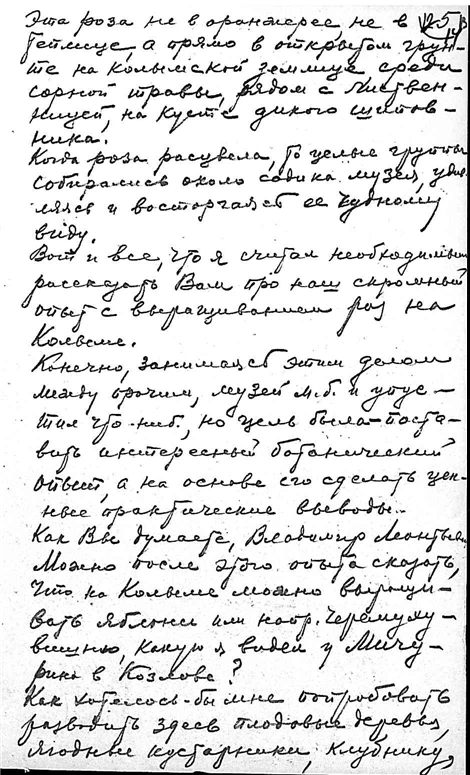 Эта роза не в оранжерее, не в
теплице, а прямо в открытом грун-
те на Колымской землице среди
сорной травы, рядом с листвен-
ницей, на кусте дикого шипов-
ника.
Когда роза расцвела, то целые группы
собирались около садика музея, удив
ляясь и восторгаясь ее чудному
виду.
Вот и все, что я считал необходимым
рассказать Вам про наш скромный
опыт с выращиванием роз на
Колыме.
Конечно, занимаясь этим делом
между прочим, музей м.б. и упус-
тил что-ниб., но цель была-поста-
вить интересный ботанический
опыт, а на основе его сделать цен-
ные практические выводы.
Как Вы думаете, Владимир Леонтьев
Можно после этого опыта сказать,
что на Колыме можно выращи-
вать яблони или напр. черемуху-
вишню, какую я видел у Мичу-
рина в Козлове?
Как хотелось-бы мне попробовать
разводить здесь плодовые деревья,
ягодные кустарники, клубнику,